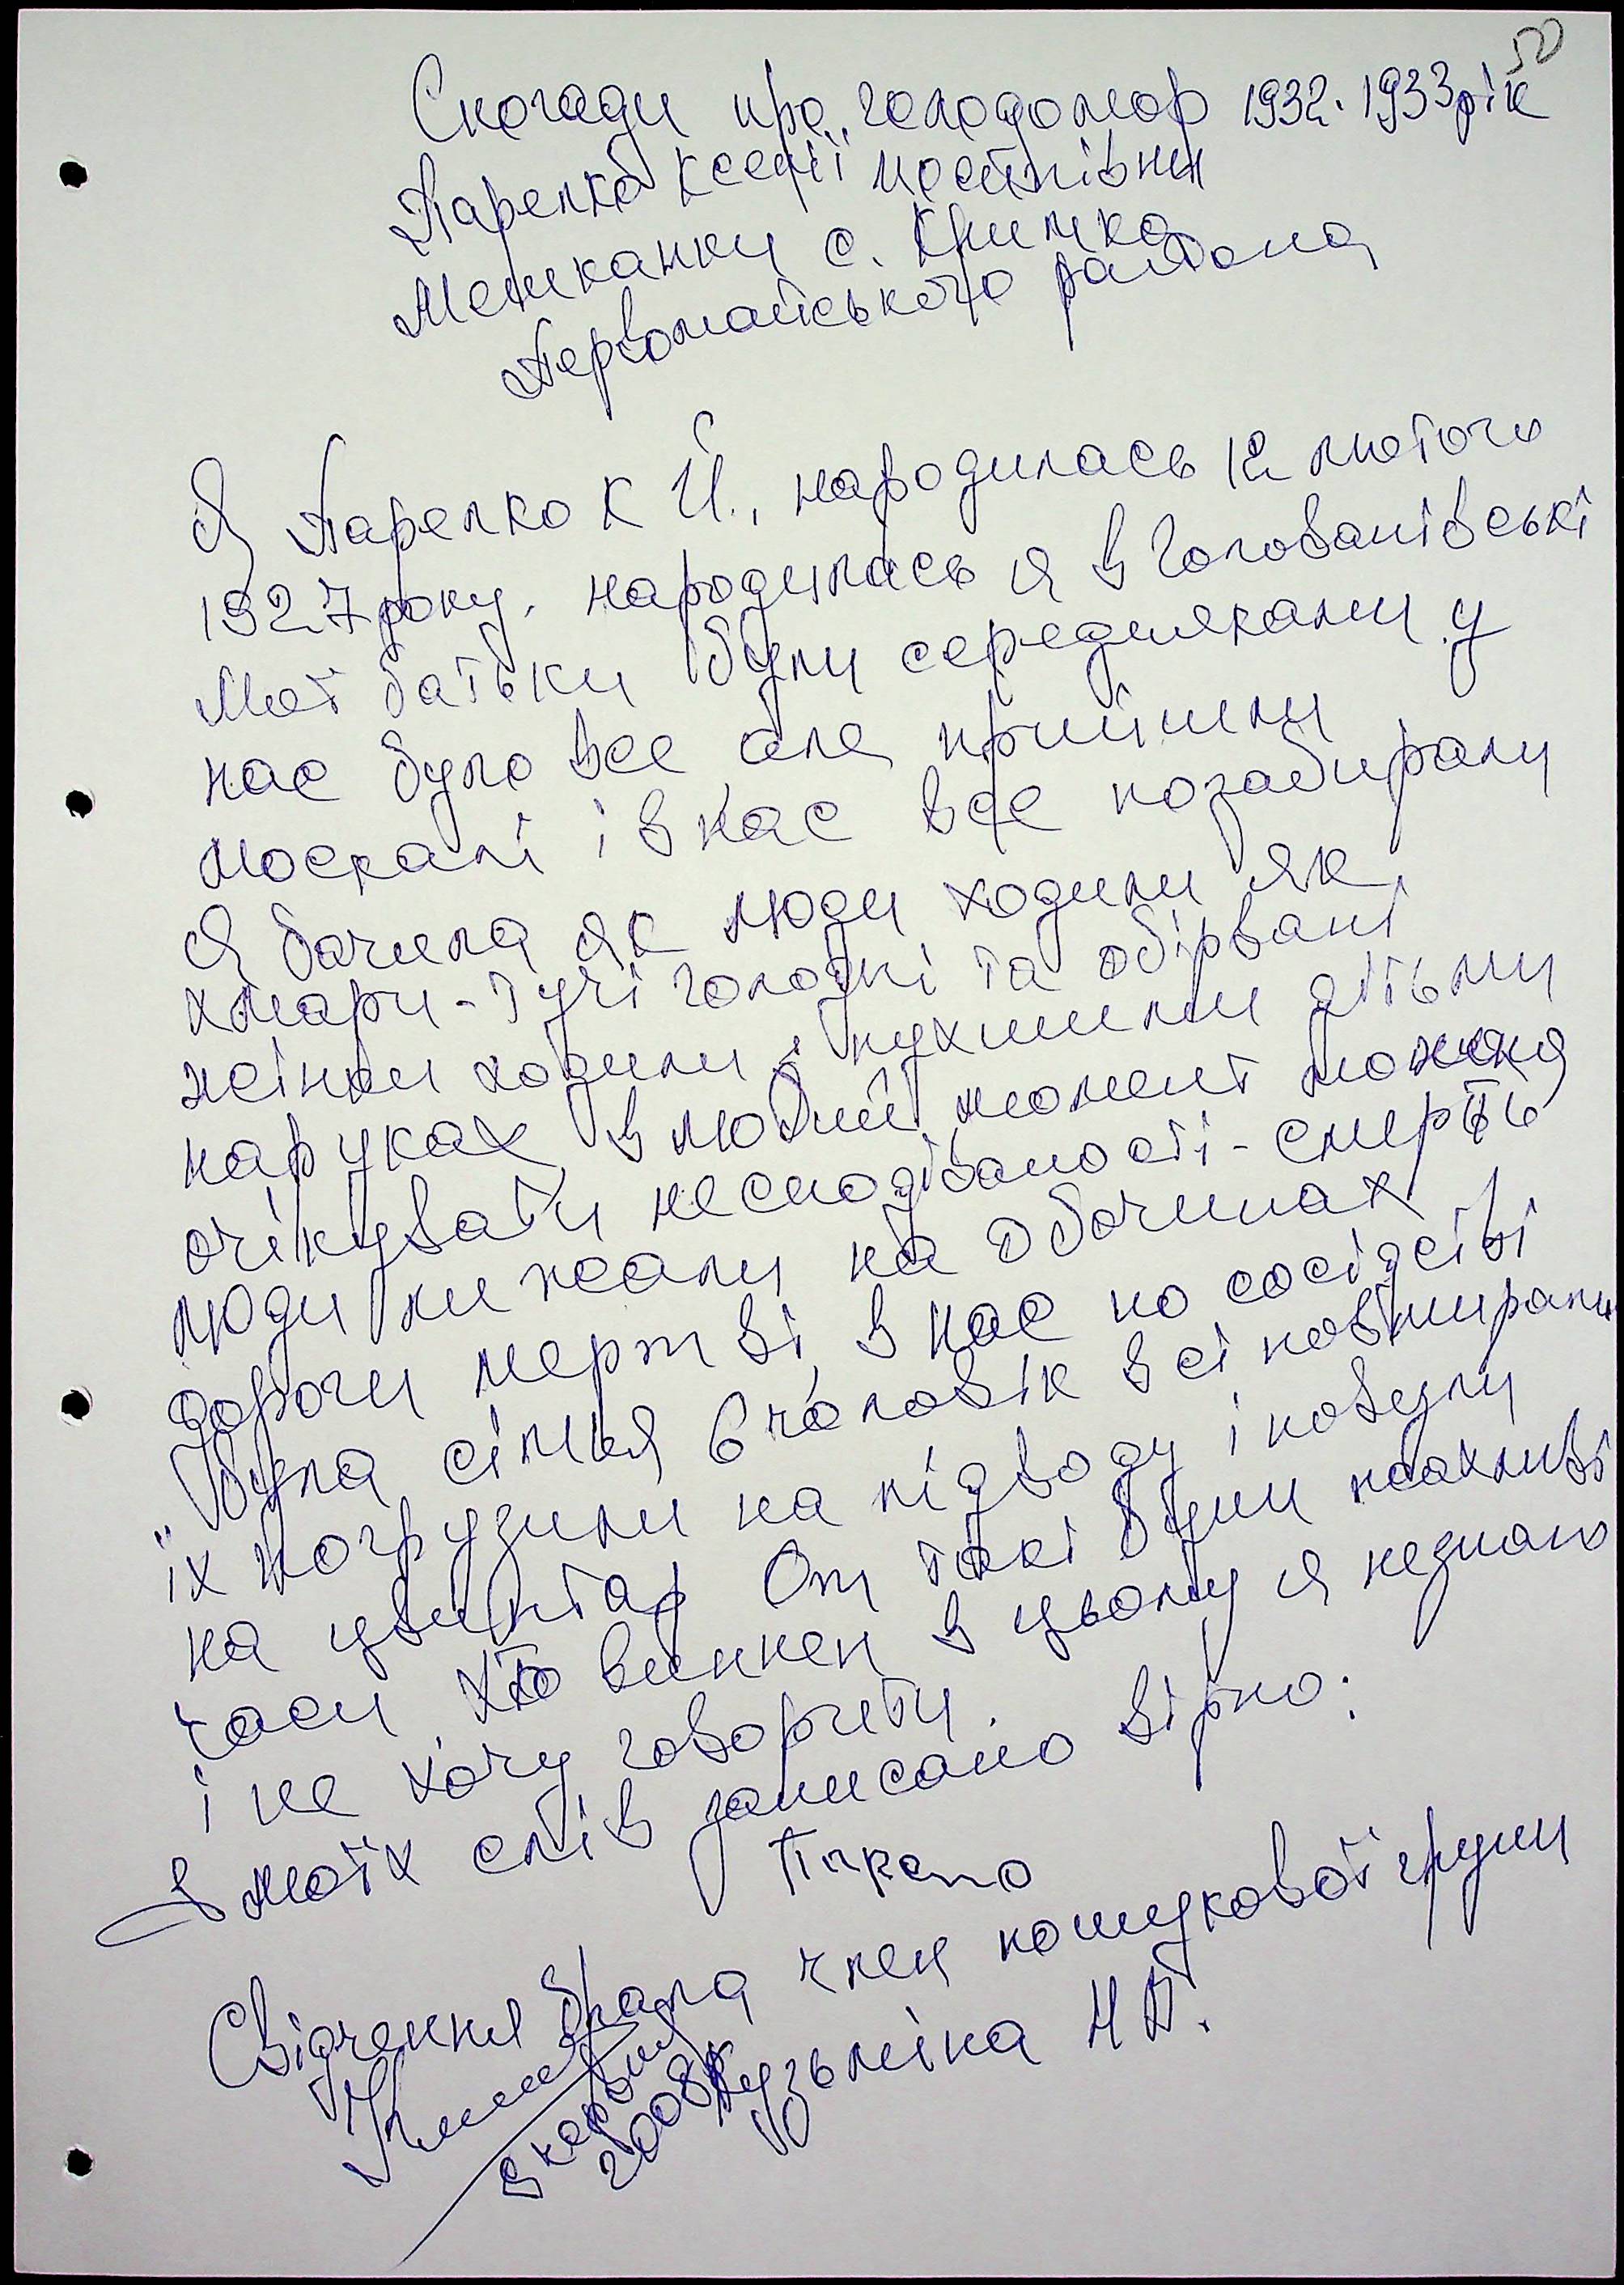 50
Спогади про голодомор 1932-1933 рік
Паренко Ксенії Йосипівни
Мешканки с. Кримка
Первомайського района
Я Паренко К Й., народилась 12 лютого
1927 року. народилась я в Голованівські
Мої батьки були середняками у
нас було все але прийшли
москалі і в нас все позабирали
Я бачила як люди ходили як
хмари-тучі голодні та обірвані
жінки ходили з пухлими дітьми
на руках, в любий момент можна
очікувати несподіваності-смерть
люди лижали на обочинах
дороги мертві, в нас по сосідстві
була сімья 6 чоловік всі повмирали
їх погрузили на підводу і повезли
на цвинтар От такі були жахливі
часи, хто винен в цьому я незнаю
і не хочу говорити.
З моїх слів записано вірно:
Паренко
Свідчення брала член пошукової групи
Кузьміна Н В.
2008